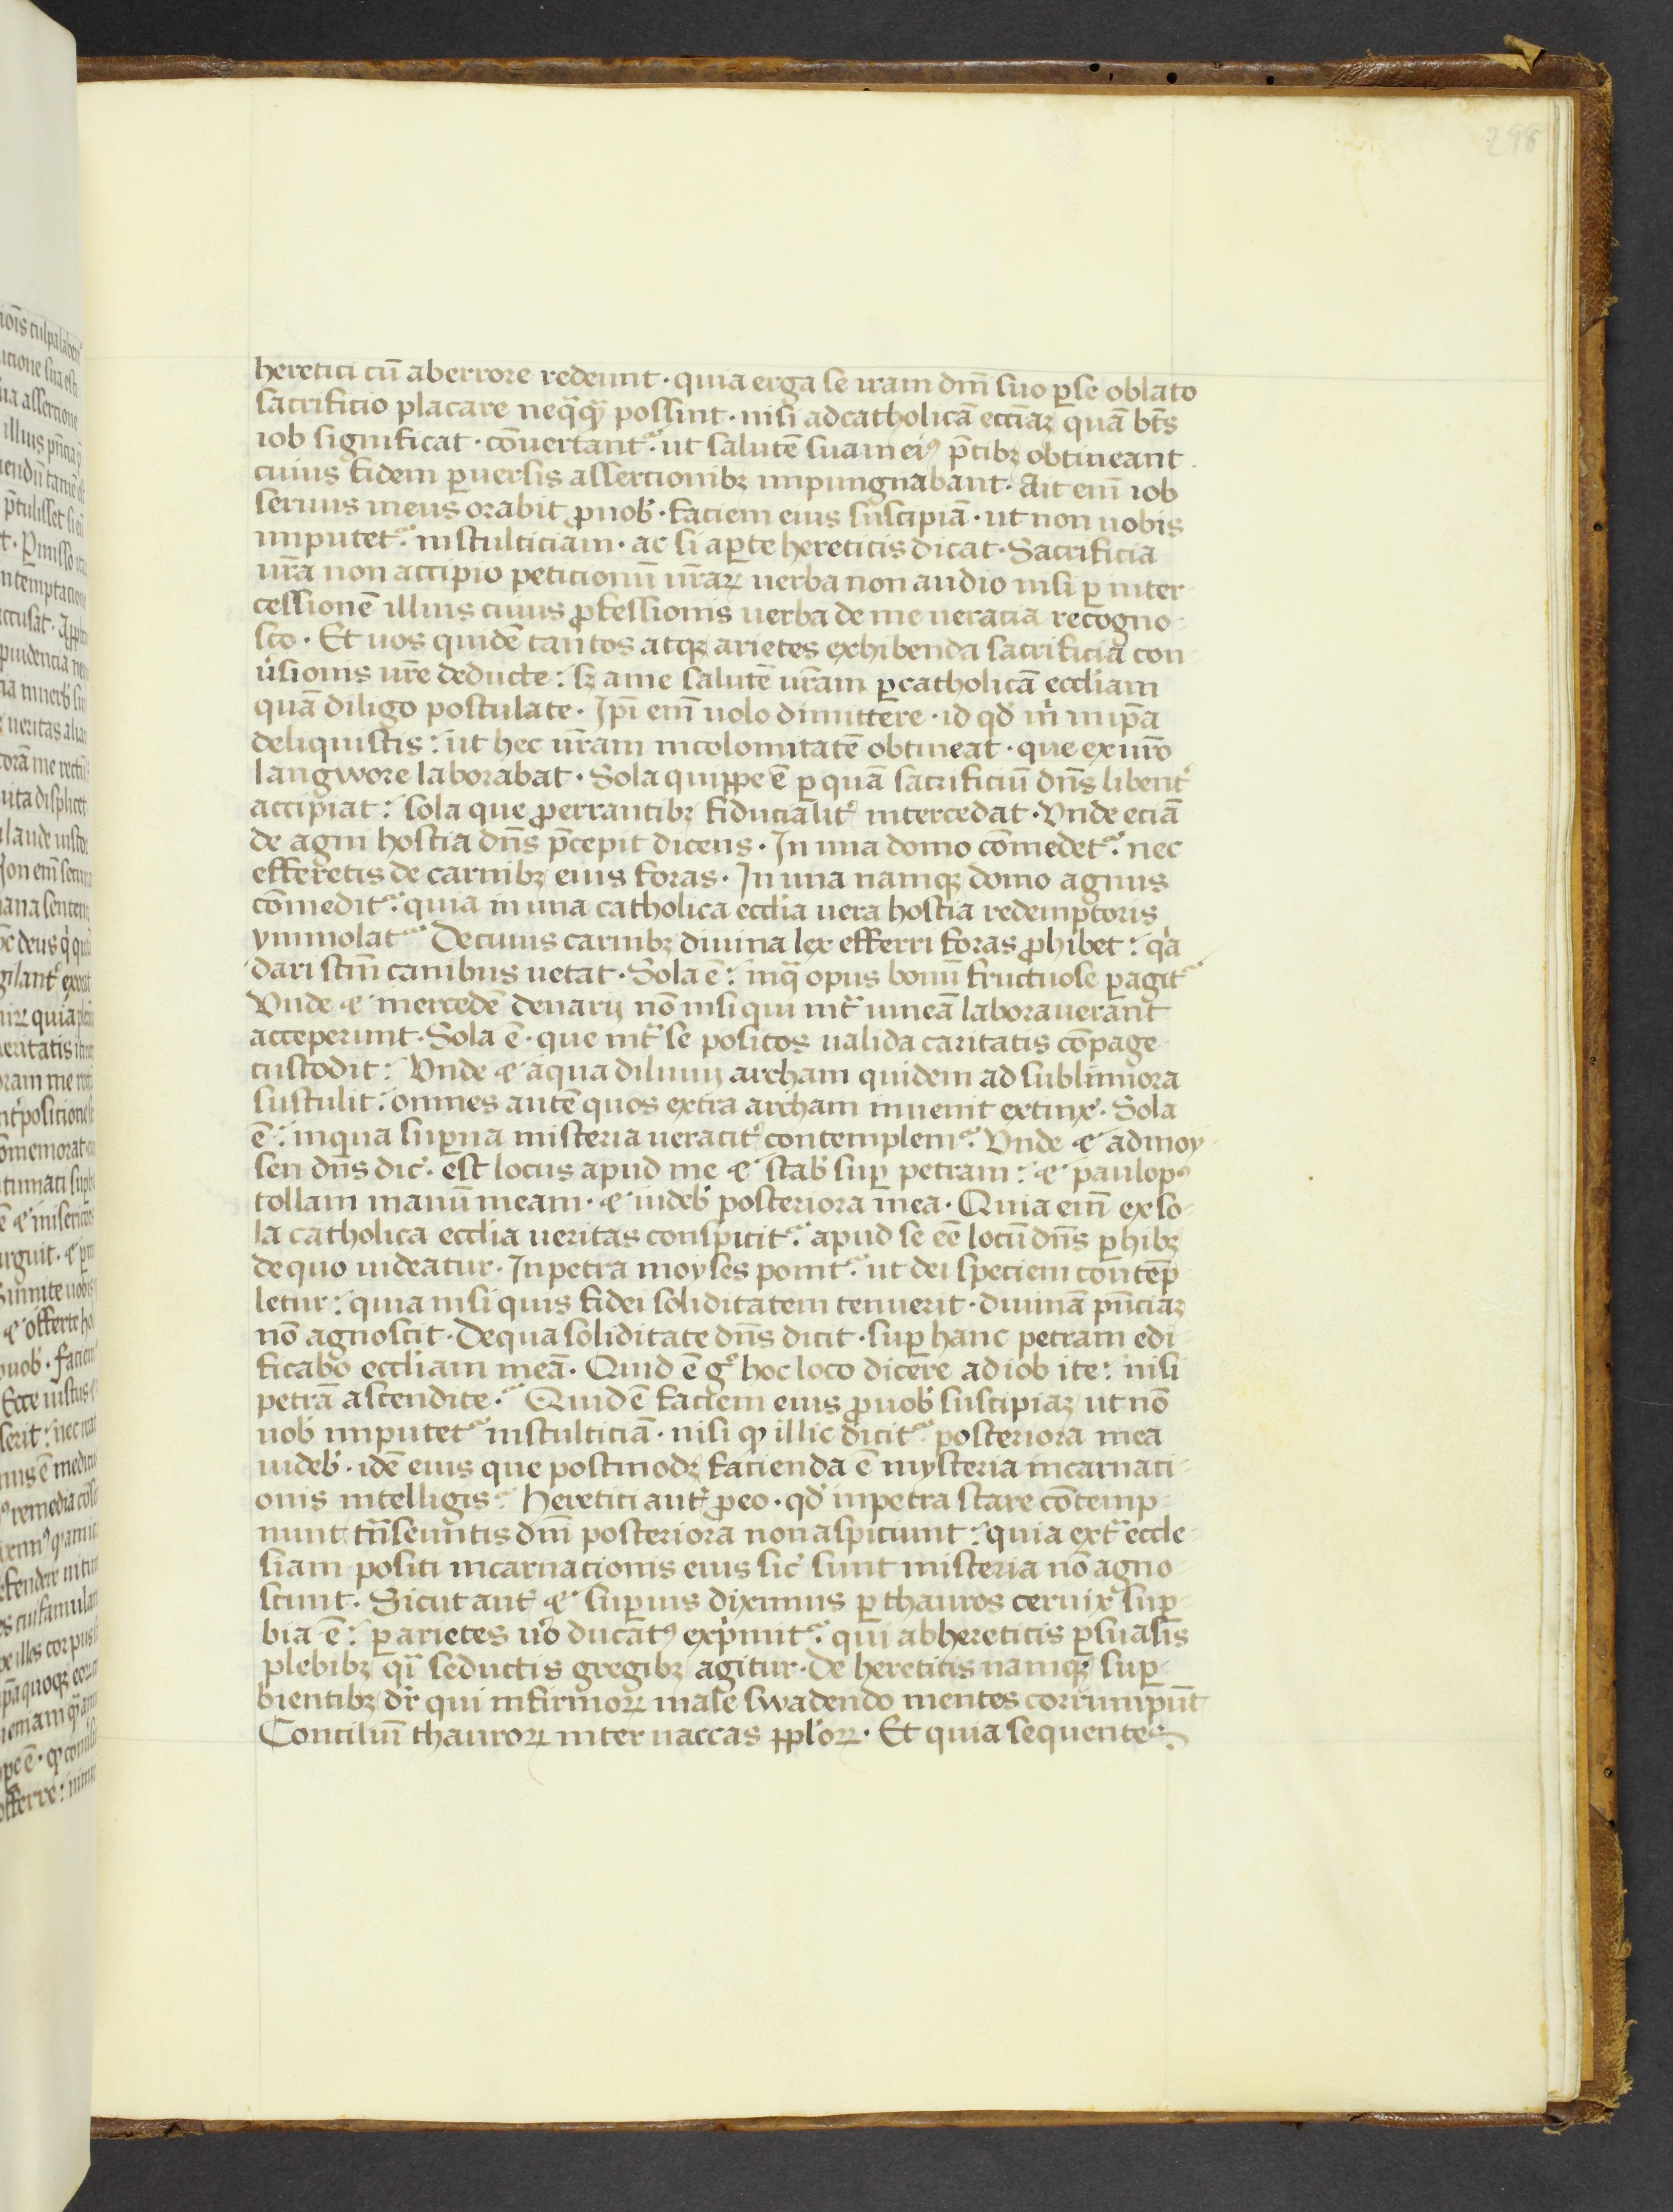 298
heretici cū aberrore redeunt · quia erga se iram dm̄ suo ꝑse oblato
sacrificio placare neq̄q̄ possint · nisi adcatholicā eccīaꝫ quā bt̄s
iob significat · cōuertant᷑ · ut salutē suam eiꝰ p̄cibꝫ obtineant ·
cuius fidem ꝑuersis assercionibꝫ impungnabant · Ait em̄ iob
seruus meus orabit ꝓnob̾ · faciem eius suscipiā · ut non uobis
imputet᷑ · instulticiam · ac si aꝑte hereticis dicat · Sacrificia
ur̄a non accipio peticionū ur̄aꝝ uerba non audio nisi ꝑ inter
cessionē illius cuius ꝓfessionis uerba de me ueracia recogno
sco · Et uos quidē tautos atqꝫ arietes exhibenda sacrificia con
u̾sionis ur̄e deducite : sꝫ ame salutē ur̄am ꝑcatholicā eccl̄iam
quā diligo postulate · Ip̄i em̄ uolo dimittere · id qd̾ m̄ inip̄a
deliquistis : ut hec ur̄am incolomitatē obtineat · que exur̄o
langwore laborabat · Sola quippe ē ꝑ quā sacrificiū dn̄s libent̾
accipiat : sola que ꝓerrantibꝫ fiducialit̾ intercedat · Vnde eciā
de agni hostia dn̄s p̄cepit dicens · In una domo cōmedet᷑ · nec
efferetis de carnibꝫ eius foras · In una namqꝫ domo agnus
cōmedit᷑ · quia in una catholica eccl̄ia uera hostia redemptoris
ymmolat᷑ Decuius carnibꝫ diuina lex efferri foras ꝓhibet : qͥa
dari scm̄ canibus uetat · Sola ē : inq̄ opus bonū fructuose ꝑagit᷑
Vnde ⁊ mercedē denarij nō nisi qui int̾ uineā laborauerant
acceperunt · Sola ē · que int̾ se positos ualida caritatis cōpage
custodit : Vnde ⁊ aqua diluuij archam quidem ad sublimiora
sustulit : omnes autē quos extra archam inuenit extinx̾ · Sola
ē : inqua suꝑna misteria ueracit̾ contemplem᷑ · Vnde ⁊ admoy
sen dn̄s dic̾ · est locus apud me ⁊ stab̾ suꝑ petram : ⁊ paulopꝰ
tollam manū meam · ⁊ uideb̾ posteriora mea · Quia em̄ ex so
la catholica eccl̄ia ueritas conspicit᷑ · apud se eē locū dn̄s ꝑhibꝫ
dequo uideatur · Inpetra moyses ponit᷑ · ut dei speciem contēp
letur : quia nisi quis fidei soliditatem tenuerit · diuinā pn̄ciaꝫ
nō agnoscit · Dequa soliditate dn̄s dicit · suꝑ hanc petram edi
ficabo eccl̄iam meā · Quid ē gͦ hoc loco dicere ad iob ite : nisi
petrā ascendite · Quid ē faciem eius ꝓuob̾ suscipiaꝫ ut nō
uob̾ imputet᷑ instulticiā · nisi ꝙ illic dicit᷑ posteriora mea
uideb̾ · idē eius que postmodꝫ facienda ē mysteria incarnaci
onis intelligis · Heretici aut̾ ꝓeo · qd̾ inpetra stare cōtemp
nunt trn̄seuntis dn̄i posteriora non aspiciunt : quia ext̾ eccle
siam positi incarnacionis eius sic̾ sunt misteria nō agno
scunt · Sicut aut̾ ⁊ superius diximus ꝑ thauros ceruix̾ suꝑ
bia ē : ꝑ arietes u̾o ducatꝰ exp̾mit᷑ · qui abhereticis ꝑsuasis
plebibꝫ qͥ seductis gregibꝫ agitur · De hereticis namqꝫ suꝑ
bientibꝫ dr̄ qui infirmoꝝ male swadendo mentes corrumpūt
Conciliū thauroꝝ inter uaccas pp̄l̾oꝝ · Et quia sequentes